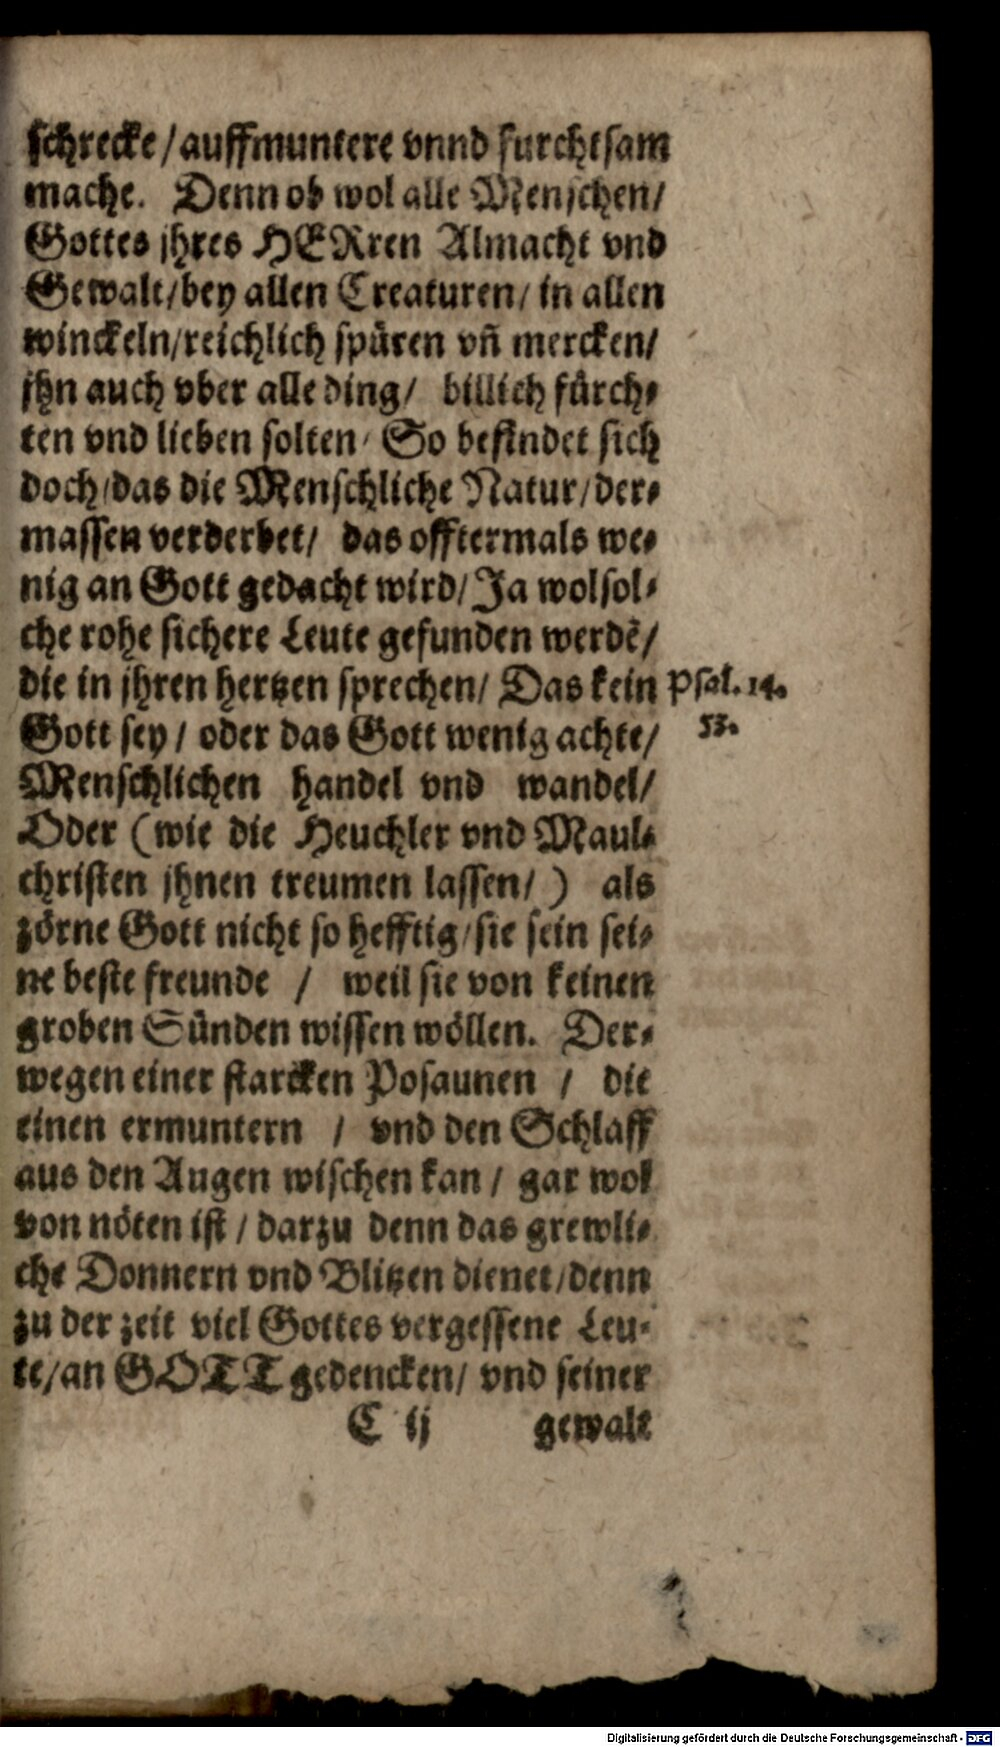 schrecke/auffmuntere vnnd furchtsam
mache. Denn ob wol alle Menschen/
Gottes jhres HERren Almacht vnd
Gewalt/bey allen Creaturen/ in allen
winckeln/reichlich spüren vñ mercken/
jhn auch vber alle ding/ billich fürch-
ten vnd lieben solten/ So befindet sich
doch/das die Menschliche Natur/der-
massen verderbet/ das offtermals we-
nig an Gott gedacht wird/Ja wol sol-
che rohe sichere Leute gefunden werdē/
die in jhren hertzen sprechen/ Das kein Psal. 14.
Gott sey/ oder das Gott wenig achte/ 53.
Menschlichen handel vnd wandel/
Oder (wie die Heuchler vnd Maul-
christen jhnen treumen lassen/) als
zörne Gott nicht so hefftig/sie sein sei-
ne beste freunde / weil sie von keinen
groben Sünden wissen wöllen. Der-
wegen einer starcken Posaunen / die
einen ermuntern / vnd den Schlaff
aus den Augen wischen kan/ gar wol
von nöten ist/ darzu denn das grewli-
che Donnern vnd Blitzen dienet/denn
zu der zeit viel Gottes vergessene Leu-
te/an GOTT gedencken/ vnd seiner
C ij gewalt
Digitalisierung gefördert durch die Deutsche Forschungsgemeinschaft - DFG